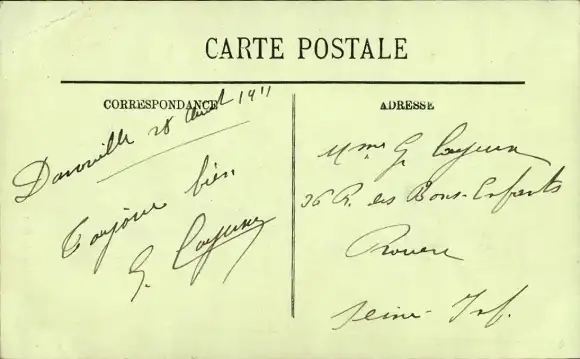 CARTE POSTALE
CORRESPONDANCE
Damville 28 Août 1911
Toujours bien.
G.
ADRESSE
Mme G.
36 R. des Bons-Enfants
Rouen
Seine-Inf.